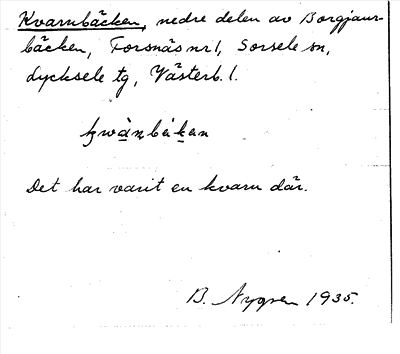 Kvarnbäcken, nedre delen av Borgjaur-
bäcken, Forsnäs nr 1, Sorsele sn,
Lycksele tg, Västerb. l.
kwànbäkan
Det har varit en kvarn där.
B. Nygren 1935.